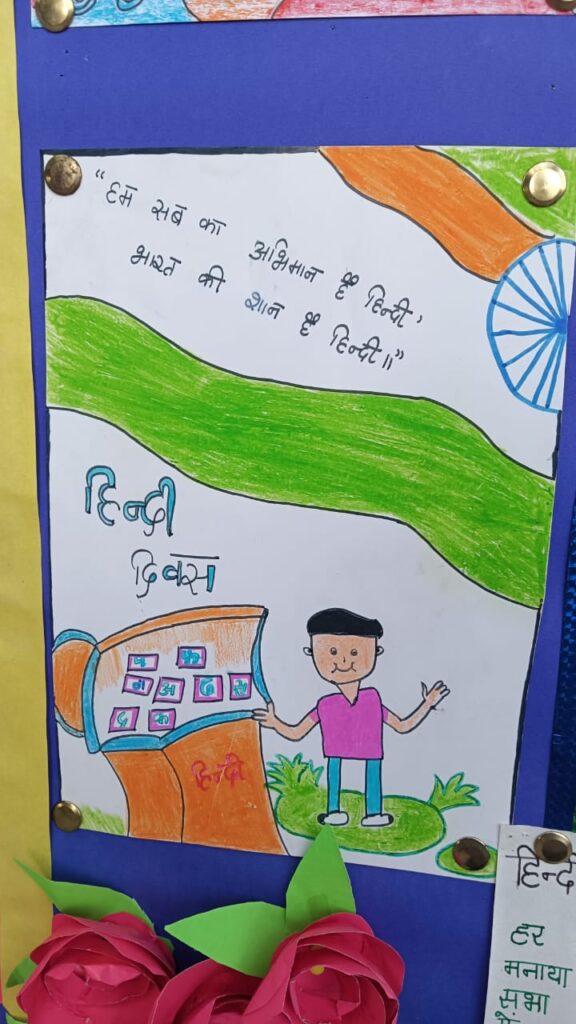 “हम सब का अभिमान है हिन्दी,
भारत की शान है हिन्दी॥”
हिन्दी
दिवस
अ
क
हिन्दी
हिन्दी
हर
मनाया
सभा